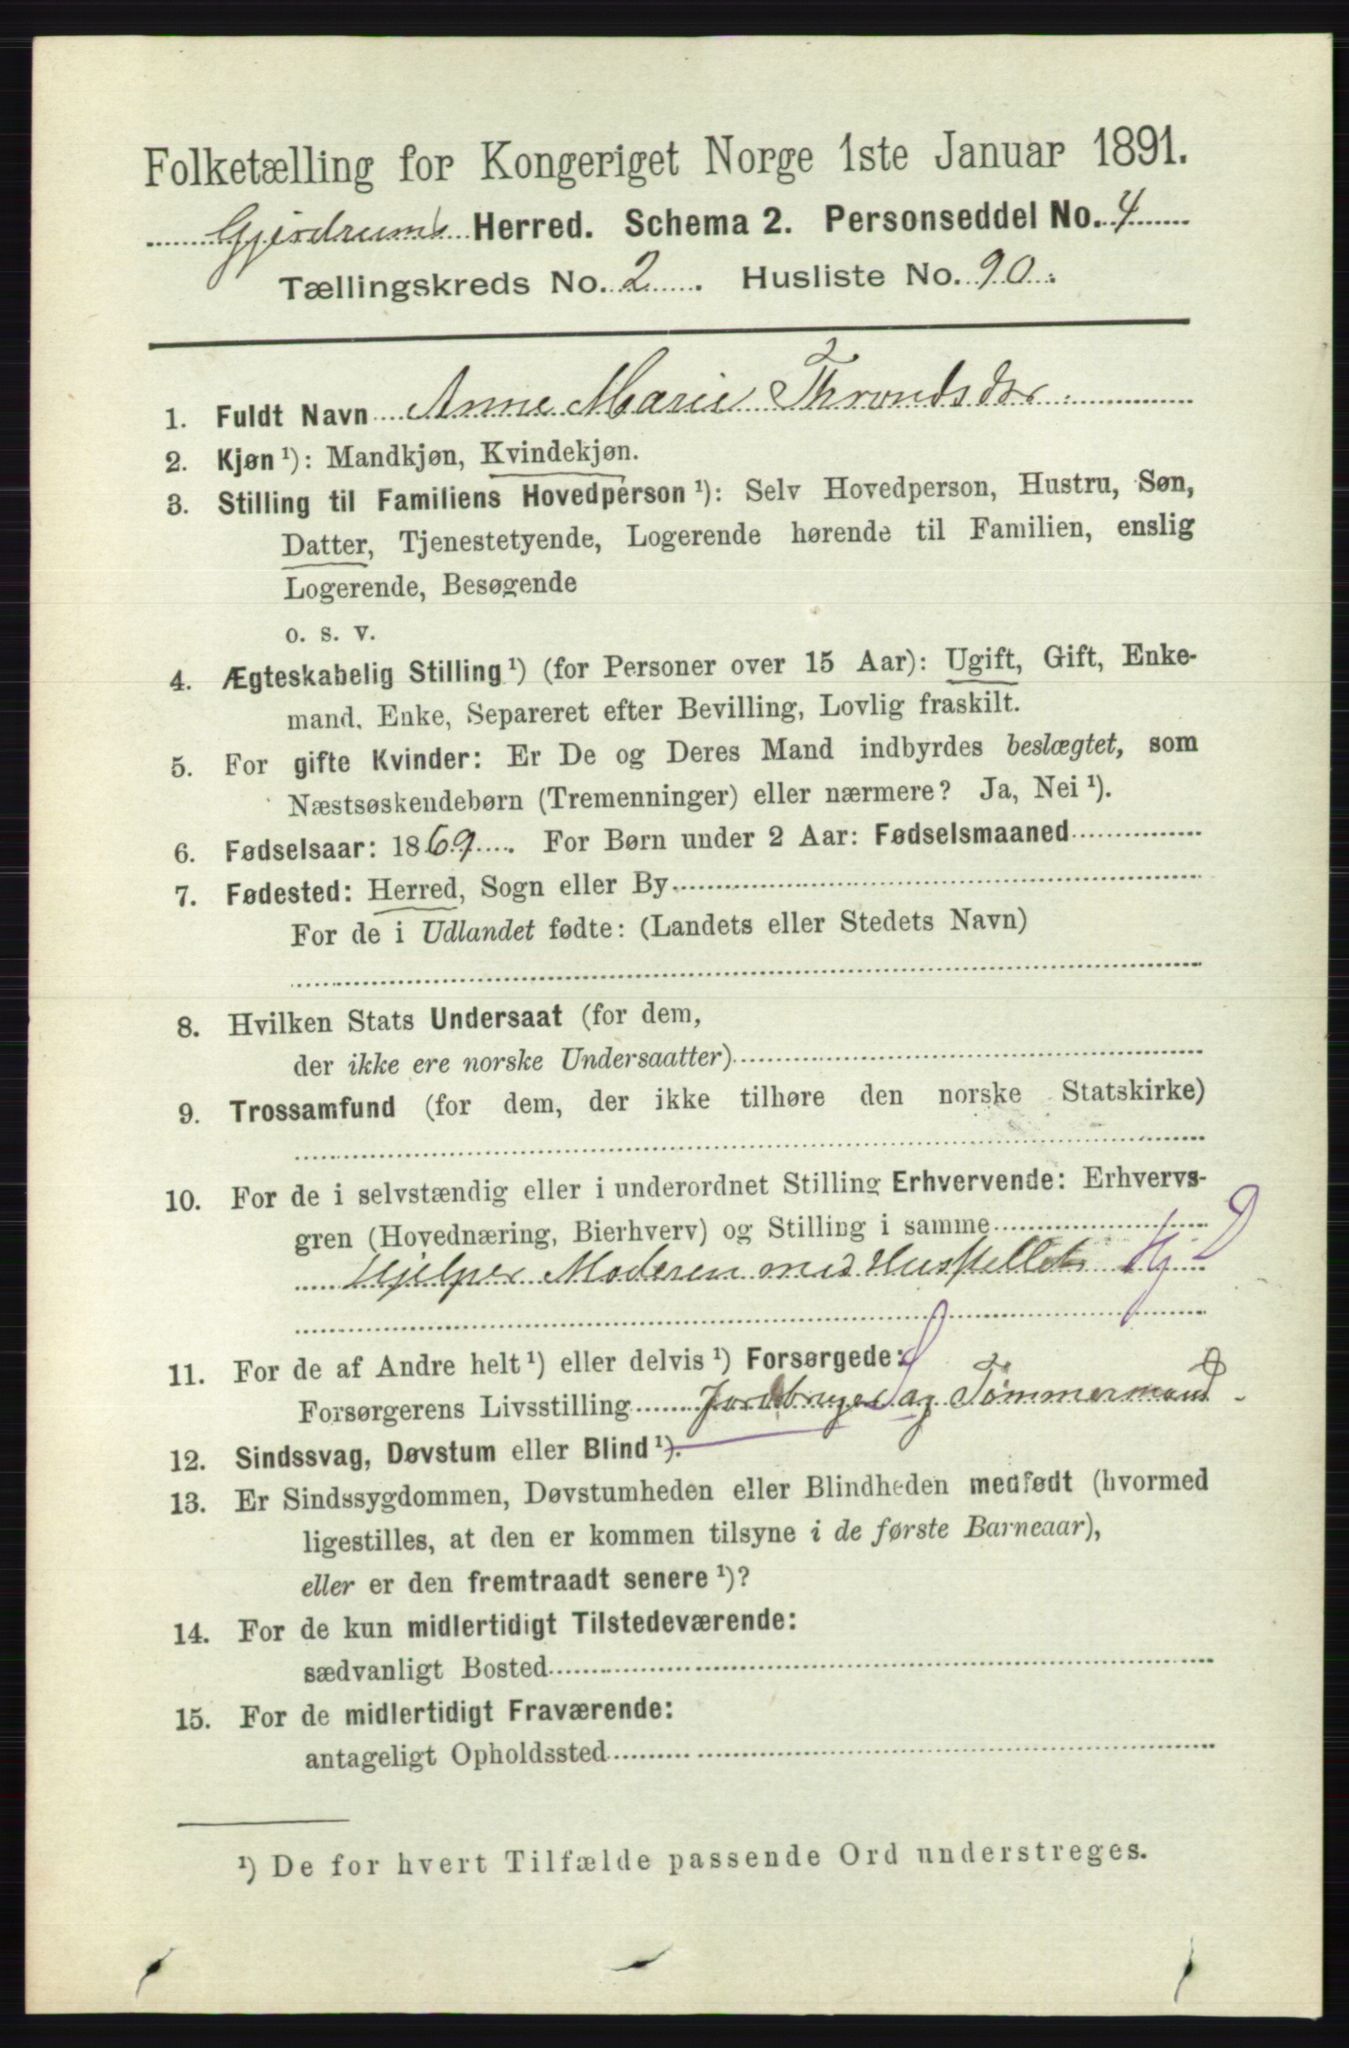 Folketælling for Kongeriget Norge 1ste Januar 1891.
Gjerdrums Herred. Schema 2. Personseddel No. 4
Tællingskreds No. 2. Husliste No. 90.
1. Fuldt Navn Anne Marie Throndsdtr.
2. Kjøn ¹): Mandkjøn, Kvindekjøn.
3. Stilling til Familiens Hovedperson ¹): Selv Hovedperson, Hustru, Søn,
Datter, Tjenestetyende, Logerende hørende til Familien, enslig
Logerende, Besøgende
o. s. v.
4. Ægteskabelig Stilling ¹) (for Personer over 15 Aar): Ugift, Gift, Enke-
mand, Enke, Separeret efter Bevilling, Lovlig fraskilt.
5. For gifte Kvinder: Er De og Deres Mand indbyrdes beslægtet, som
Næstsøskendebørn (Tremenninger) eller nærmere? Ja, Nei ¹).
6. Fødselsaar: 1869. For Børn under 2 Aar: Fødselsmaaned
7. Fødested: Herred, Sogn eller By
For de i Udlandet fødte: (Landets eller Stedets Navn)
8. Hvilken Stats Undersaat (for dem,
der ikke ere norske Undersaatter)
9. Trossamfund (for dem, der ikke tilhøre den norske Statskirke)
10. For de i selvstændig eller i underordnet Stilling Erhvervende: Erhvervs-
gren (Hovednæring, Bierhverv) og Stilling i samme
Hjelper Moderen med Husstellet Hj D
11. For de af Andre helt ¹) eller delvis ¹) Forsørgede:
Forsørgerens Livsstilling Jordbruger og Tømmermand
12. Sindssvag, Døvstum eller Blind ¹).
13. Er Sindssygdommen, Døvstumheden eller Blindheden medfødt (hvormed
ligestilles, at den er kommen tilsyne i de første Barneaar),
eller er den fremtraadt senere ¹)?
14. For de kun midlertidigt Tilstedeværende:
sædvanligt Bosted
15. For de midlertidigt Fraværende:
antageligt Opholdssted
¹) De for hvert Tilfælde passende Ord understreges.